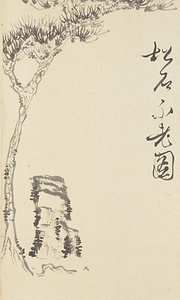 松石不老圖